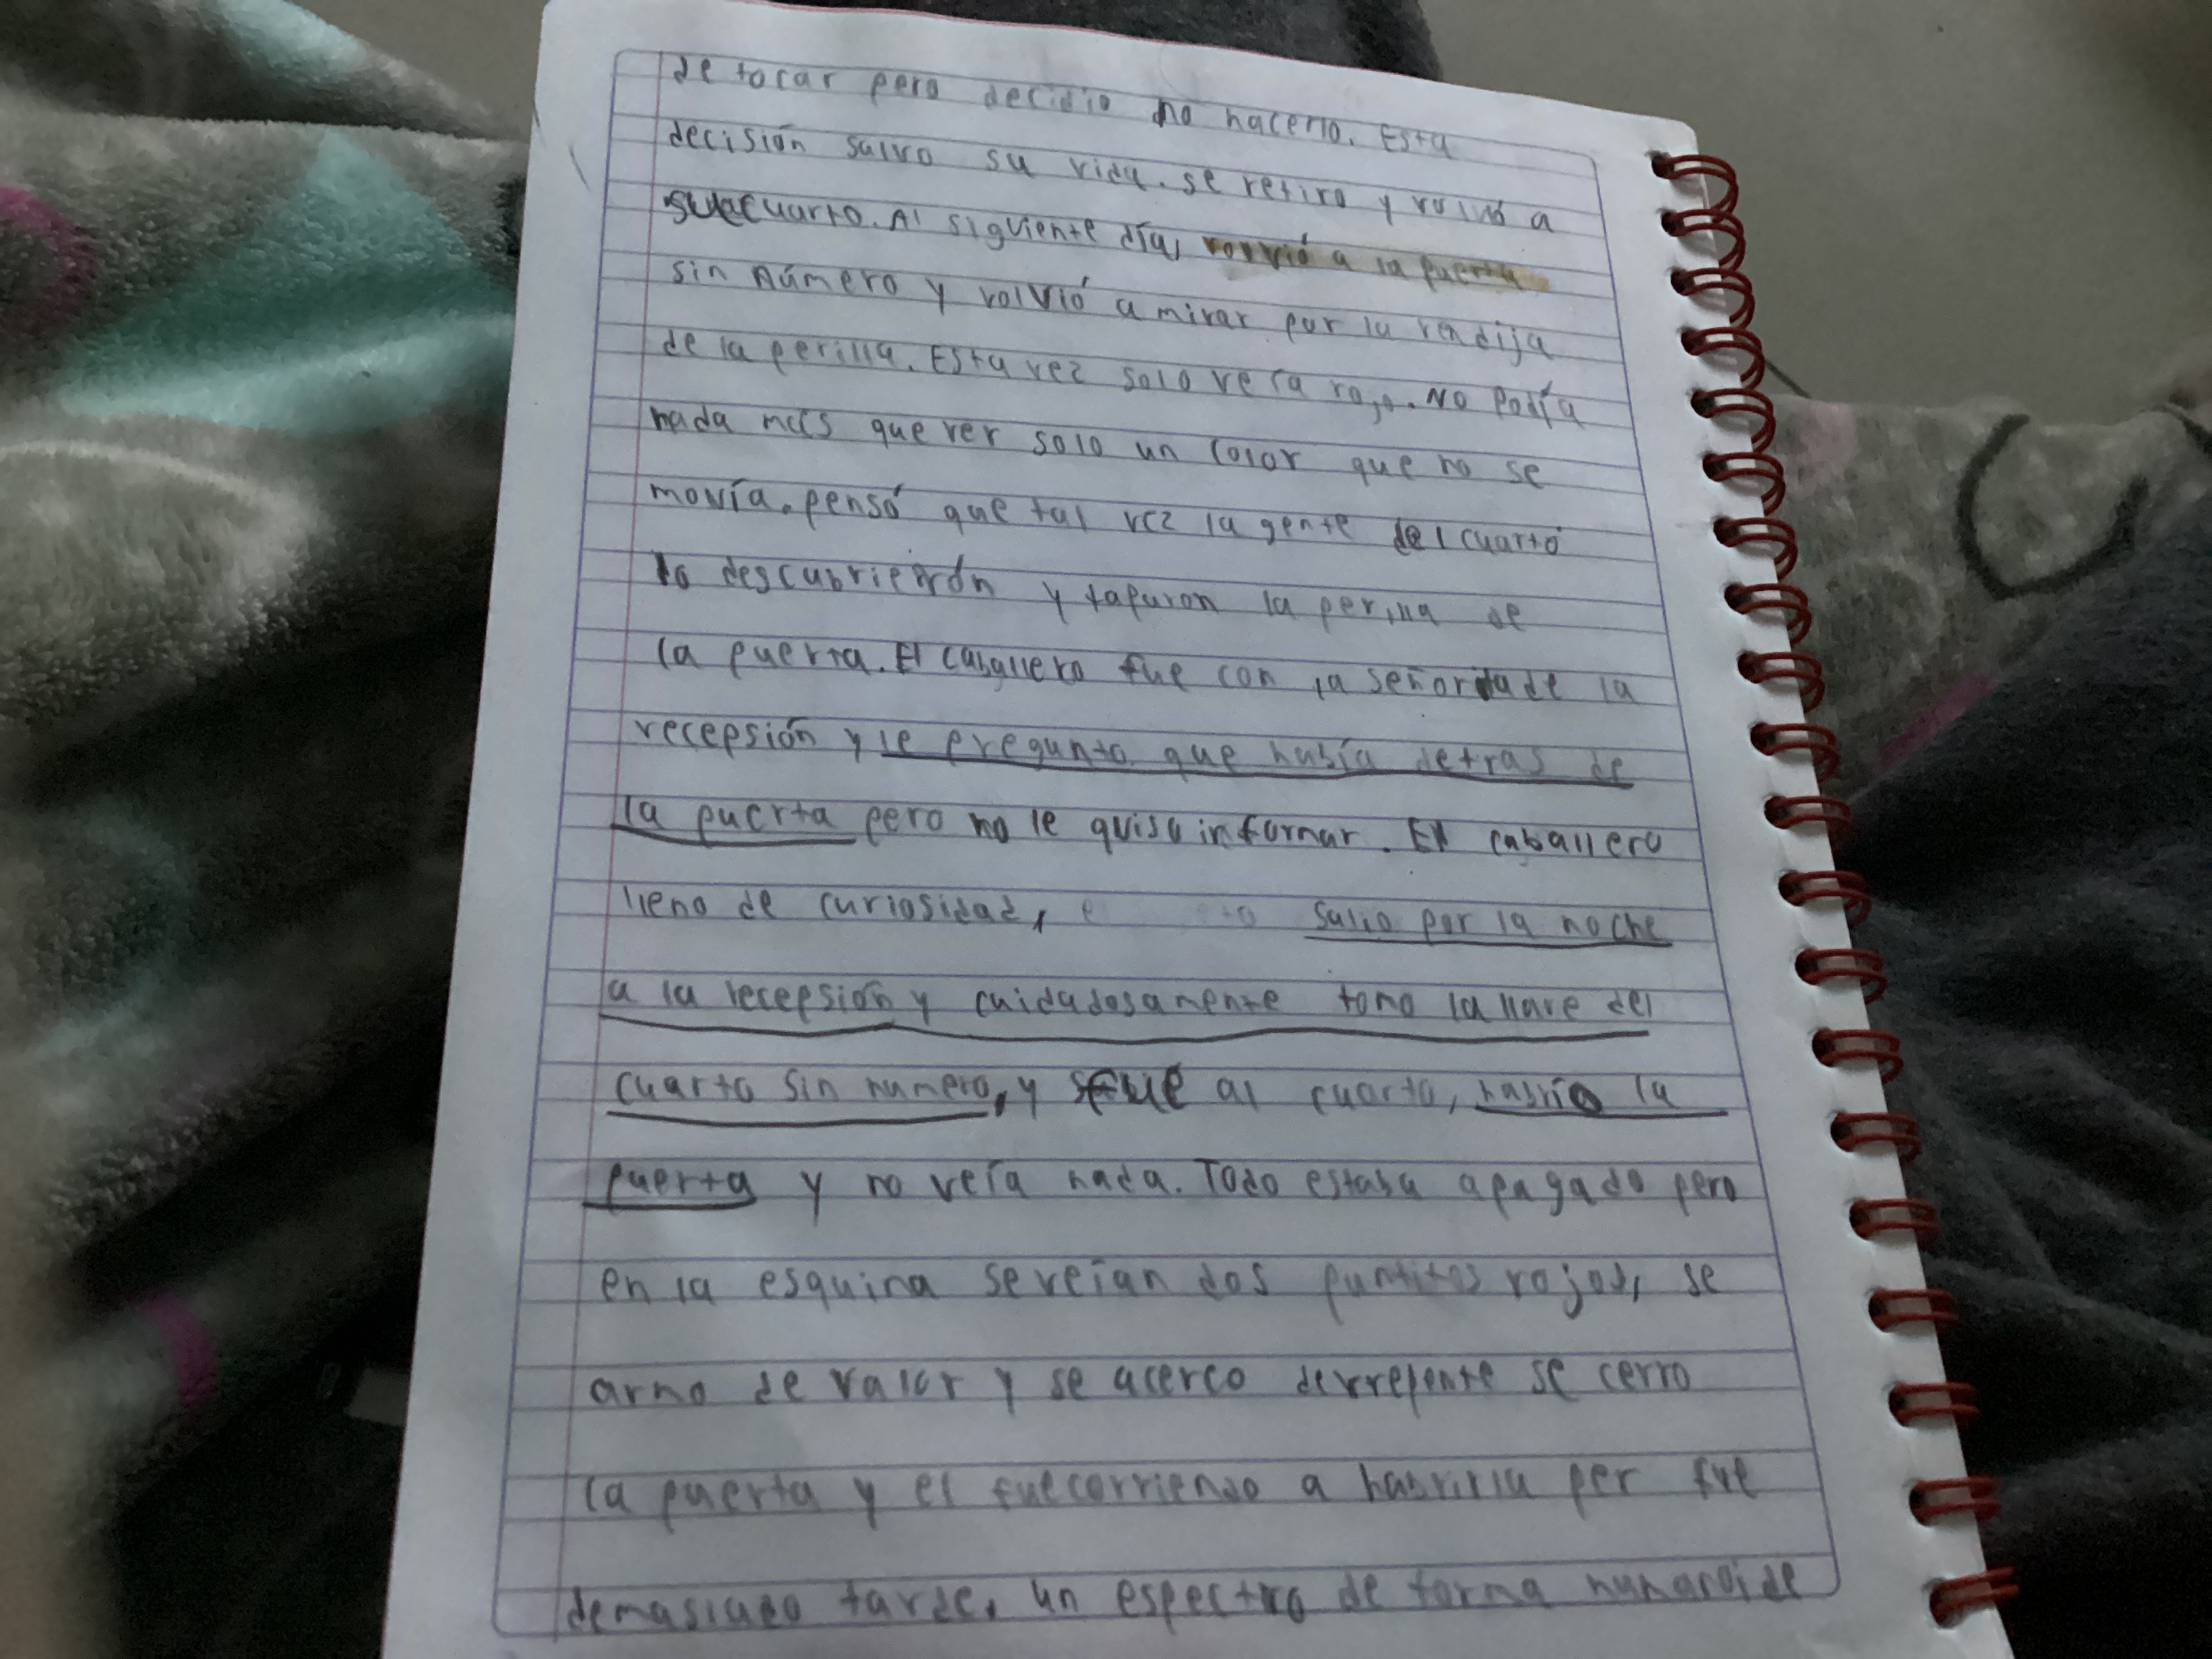 de tocar pero decidio no hacerlo. Esta
decisión salvo su vida. se retiro y volvió a
su cuarto. Al siguiente día, volvió a la puerta
sin número y volvió a mirar por la rendija
de la perilla. Esta vez solo veía rojo. No Podía
nada mas que ver solo un color que no se
movía. pensó que tal vez la gente del cuarto
lo descubrierón y taparon la perilla de
la puerta. El caballero fue con la señorita de la
recepsión y le pregunto que había detras de
la puerta pero no le quiso informar. El caballero
lleno de curiosidad, salio por la noche
a la recepsión y cuidadosamente tomo la llave del
cuarto sin numero, y fue al cuarto, habrio la
puerta y no veía nada. Todo estaba apagado pero
en la esquina se veían dos puntitos rojos, se
armo de valor y se acerco derrepente se cerro
la puerta y el fue corriendo a habrirla per fue
demasiado tarde. un espectro de forma humanoide